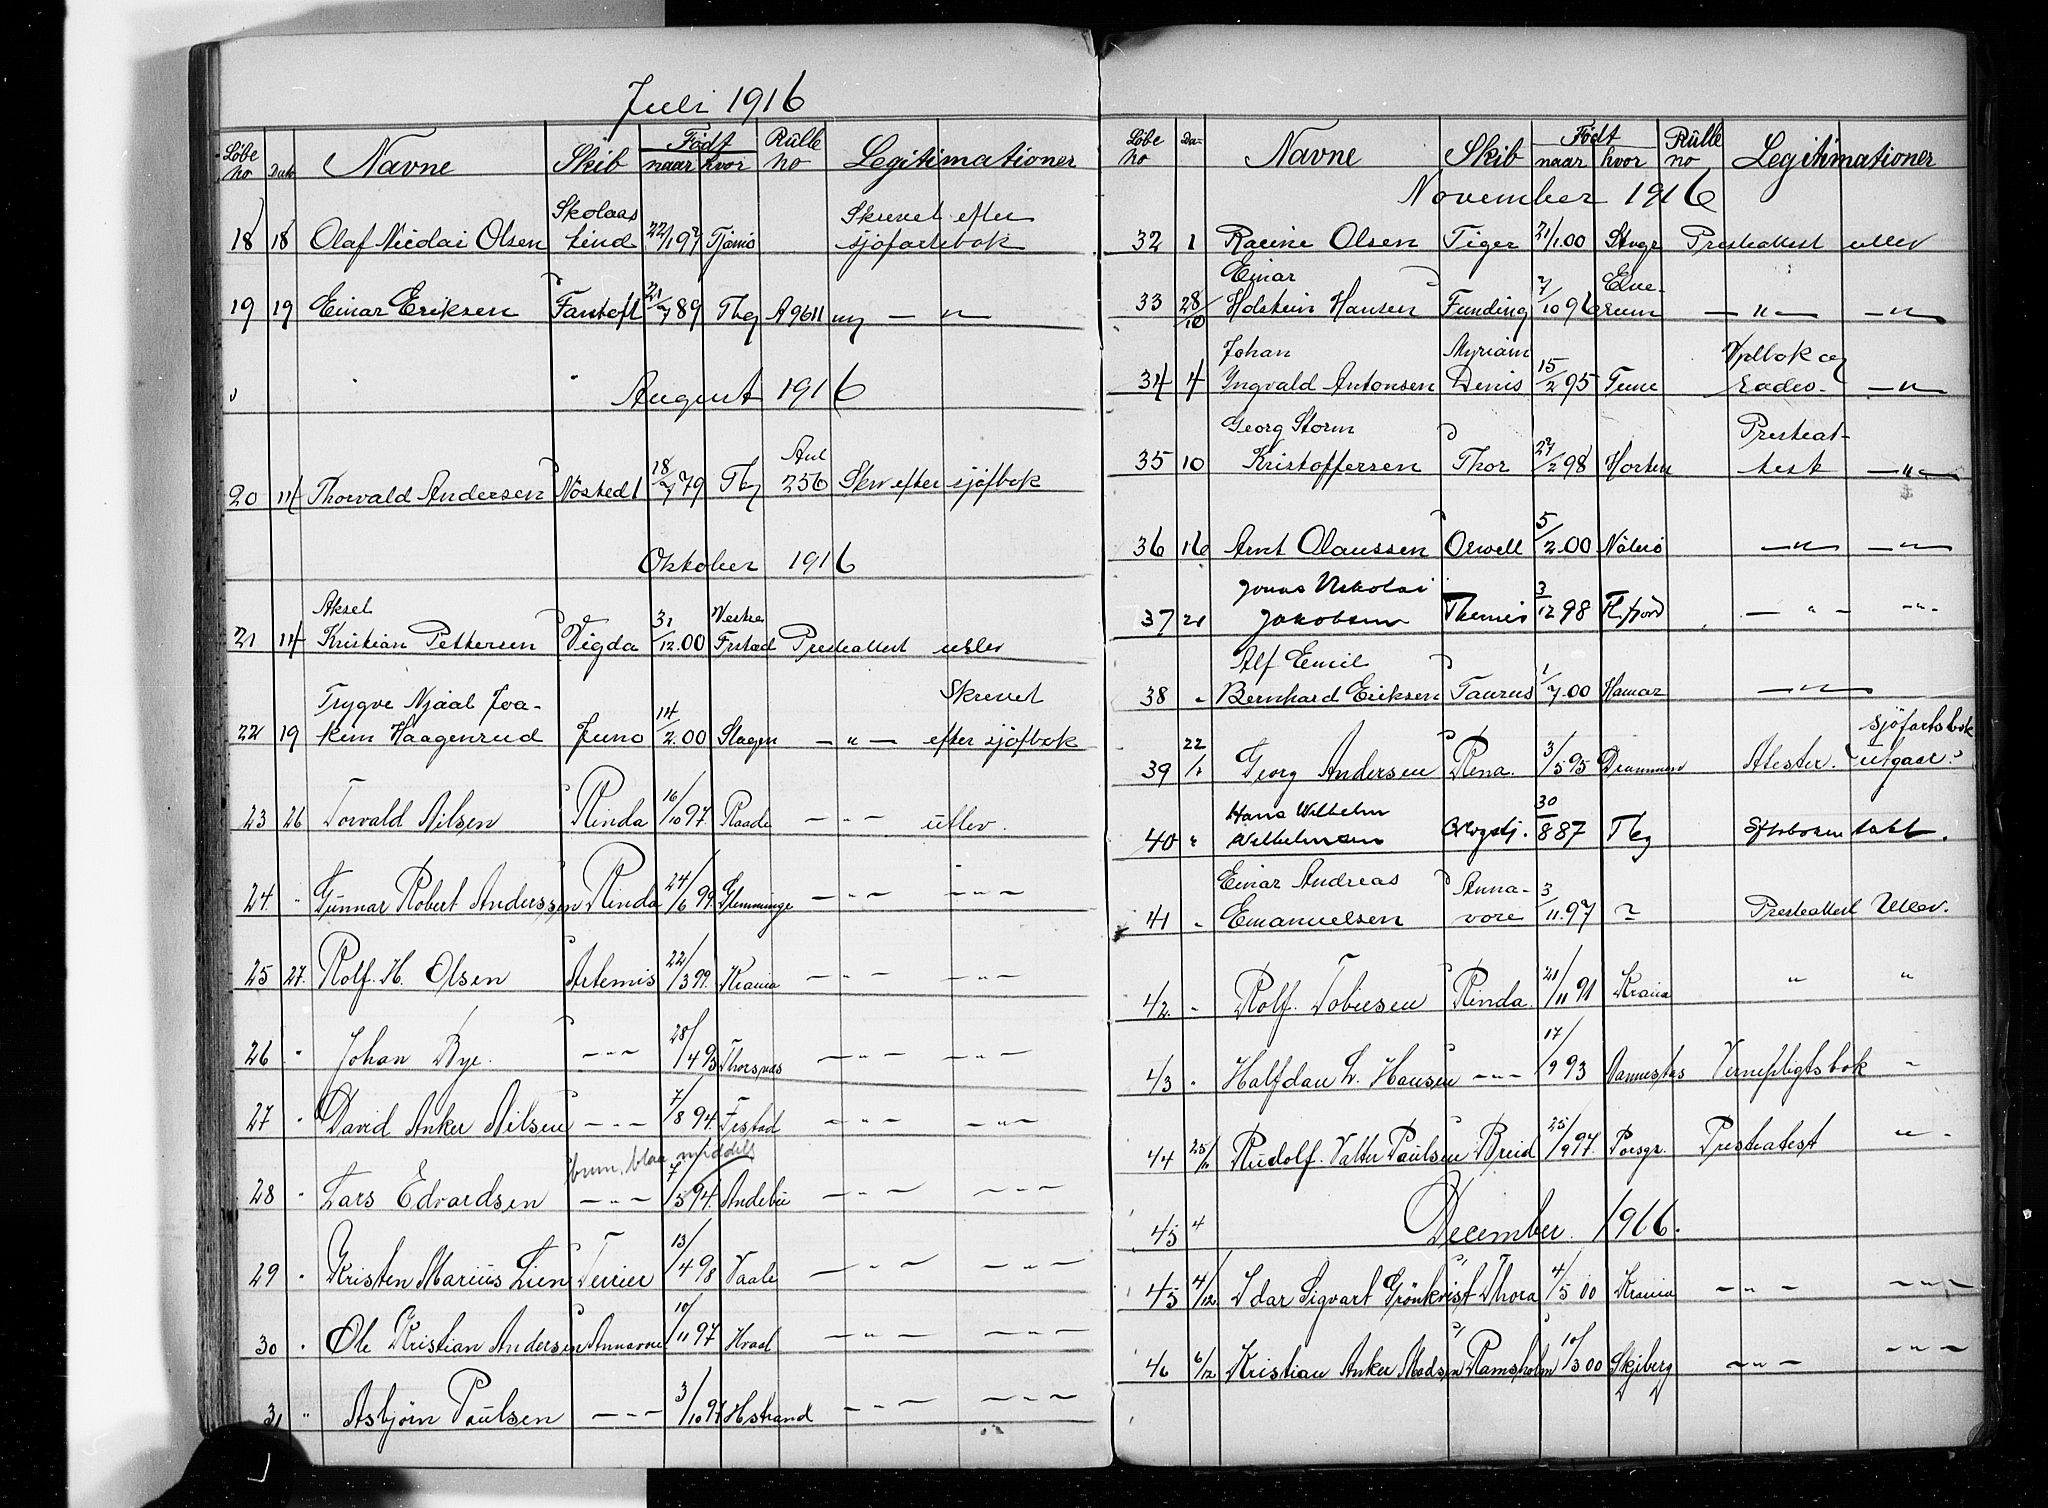 Juli 1916
Løbe no Dato Navne Skib Født naar hvor Rulle no Legitimationer
18 18 Olaf Nicolai Olsen Skolaas tind 22/1 97 Tjømø Skrevet efter sjøfartsbok
19 19 Einar Eriksen Fantoft 21/7 89 Tbg A9611 ny — " —
August 1916
20 14 Thorvald Andersen Nøstedt 18/7 79 Tbg Aul 256 Skrv efter sjøfbok
Oktober 1916
21 14 Aksel Kristian Pettersen Vigda 31/12.00 Vestre Frstad Presteattest utlev
22 19 Trygve Njaal Joa-
kim Haagenrud Juno 14/2.00 Slagen — " — Skrevet efter sjøfbok
23 26 Torvald Nilsen Rinda 16/10 97. Raade — " — utlev.
24. " Gunnar Robert Anderssen Rinda 24/6 99. Glemminge — " — — " —
25 27. Rolf. H. Olsen Artemis 22/3 99. Krania — " — — " —
26 " Johan Bye. — " — 28/4 93 Thorsnæs — " — — " —
27 " David Anker Nilsen — " — 7/8 94. Frstad — " — — " —
brun, blaa, middels
28 " Lars Edvardsen — " — 7/5 94. Andebu — " — — " —
29 " Kristen Marius Lien Terrier 13/4 98 Vaale — " — — " —
30 " Ole Kristian Andersen Annavore 10/11 97 Hvaal — " — — " —
31 " Asbjørn Paulsen — " — 3/10 97 Hstrand — " — — " —
Løbe no Da- Navne Skib Født naar hvor Rulle no Legitimationer
November 1916
32 1 Racine Olsen Tiger 21/1.00 Stvgr Presteattest utlev
33 28/10 Einar Holstein Hansen Funding 7/10 96 Elve-
rum — " — — " —
34 4 Johan Ingvald Antonsen Myriam Denis 15/2 95 Tune Vplbok og — " —
35 10 Georg Storm Kristoffersen Thor 27/2 98 Horten Presteat-
test — " —
36 16 Arnt Olaussen Orwell 5/2.00 Nøterø — " — — " —
37 21 Jonas Nikolai Jakobsen Themis 3/12 98 H.fjord — " — — " —
38 " Alf Emil Bernhard Eriksen Taurus 1/7.00 Hamar — " —
39 22/11 Georg Andersen Rena. 3/5 95 Drammen Atester. sjøfartsbok (utgaar.)
40 " Hans Wilhelm Wilhelmsen 30/8 87 Tbg
41 " Einar Andreas Emanuelsen Anna-
vore 3/11.97 ? Presteattest Utlev.
42. " Rolf. Tobiesen Rinda. 21/11 91 Krania " "
43 " Halfdan L. Hansen — " — 17/9 93 Vernepligtsbok "
44 25/11 Rudolf. Valter Paulsen Breid 25/9 97. Porsgr. Presteatest " .
45 4 December. 1916.
45 4/12 Idar Sigvart Grönkvist Thora 4/5 00 Krania — " — — " —
46 6/12 Kristian Anker Madsen Ramsholm 10/3 00 Skjeberg — " — — " —